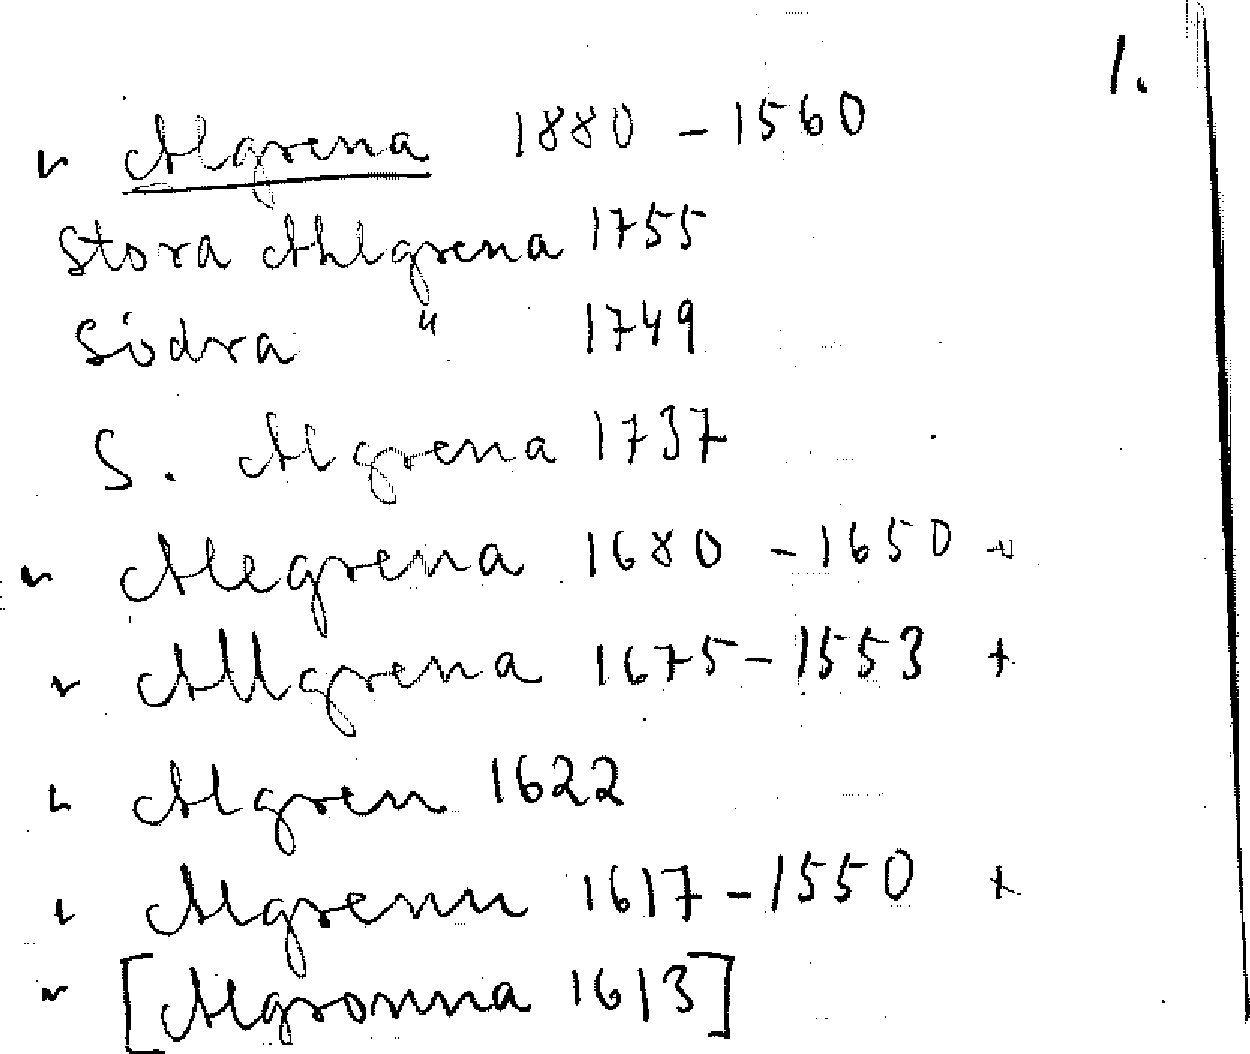 1.
v Algrena 1880 - 1560
Stora Ahlgrena 1755
Södra " 1749
S. Algrena 1737
v Alegrena 1680 - 1650 +
v Allgrena 1675 - 1553 +
v Algren 1622
v Algrenn 1617 - 1550 +
v [Algronna 1613]